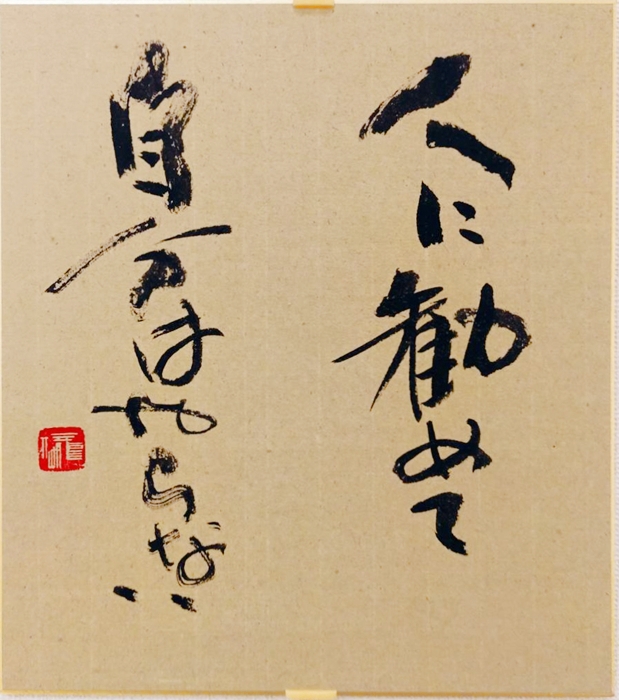 人に勧めて
自分はやらない